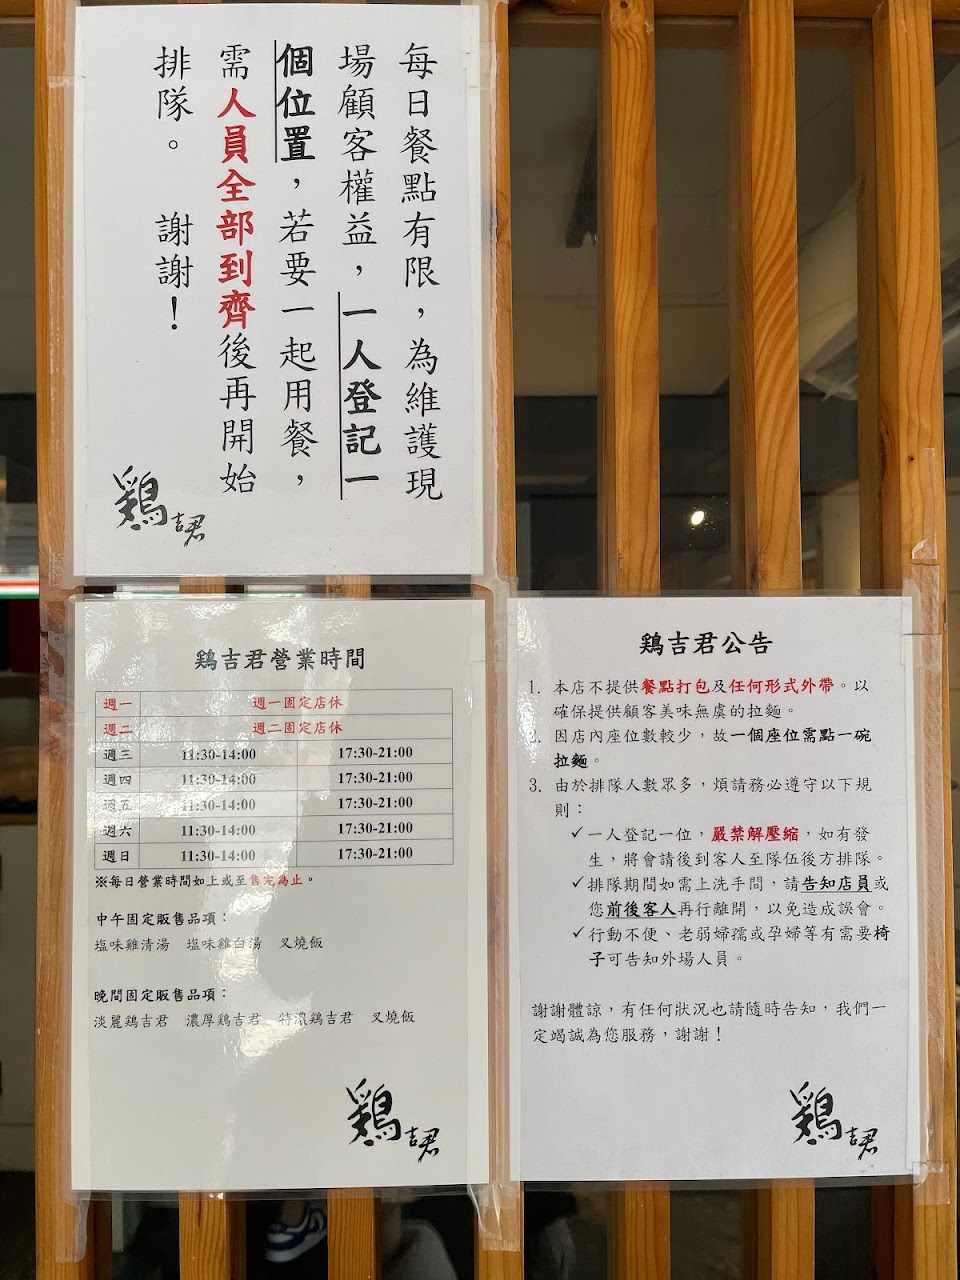 每日餐點有限，為維護現
場顧客權益，一人登記一
個位置，若要一起用餐，
需人員全部到齊後再開始
排隊。 謝謝！
鶏吉君
鶏吉君營業時間
週一 週一固定店休
週二 週二固定店休
週三 11:30-14:00 17:30-21:00
週四 11:30-14:00 17:30-21:00
週五 11:30-14:00 17:30-21:00
週六 11:30-14:00 17:30-21:00
週日 11:30-14:00 17:30-21:00
※每日營業時間如上或至售完為止。
中午固定販售品項：
塩味雞清湯 塩味雞白湯 叉燒飯
晚間固定販售品項：
淡麗鶏吉君 濃厚鶏吉君 特濃鶏吉君 叉燒飯
鶏吉君
鶏吉君公告
1. 本店不提供餐點打包及任何形式外帶。以
確保提供顧客美味無虞的拉麵。
2. 因店內座位數較少，故一個座位需點一碗
拉麵。
3. 由於排隊人數眾多，煩請務必遵守以下規
則：
✓一人登記一位，嚴禁解壓縮，如有發
生，將會請後到客人至隊伍後方排隊。
✓排隊期間如需上洗手間，請告知店員或
您前後客人再行離開，以免造成誤會。
✓行動不便、老弱婦孺或孕婦等有需要椅
子可告知外場人員。
謝謝體諒，有任何狀況也請隨時告知，我們一
定竭誠為您服務，謝謝！
鶏吉君